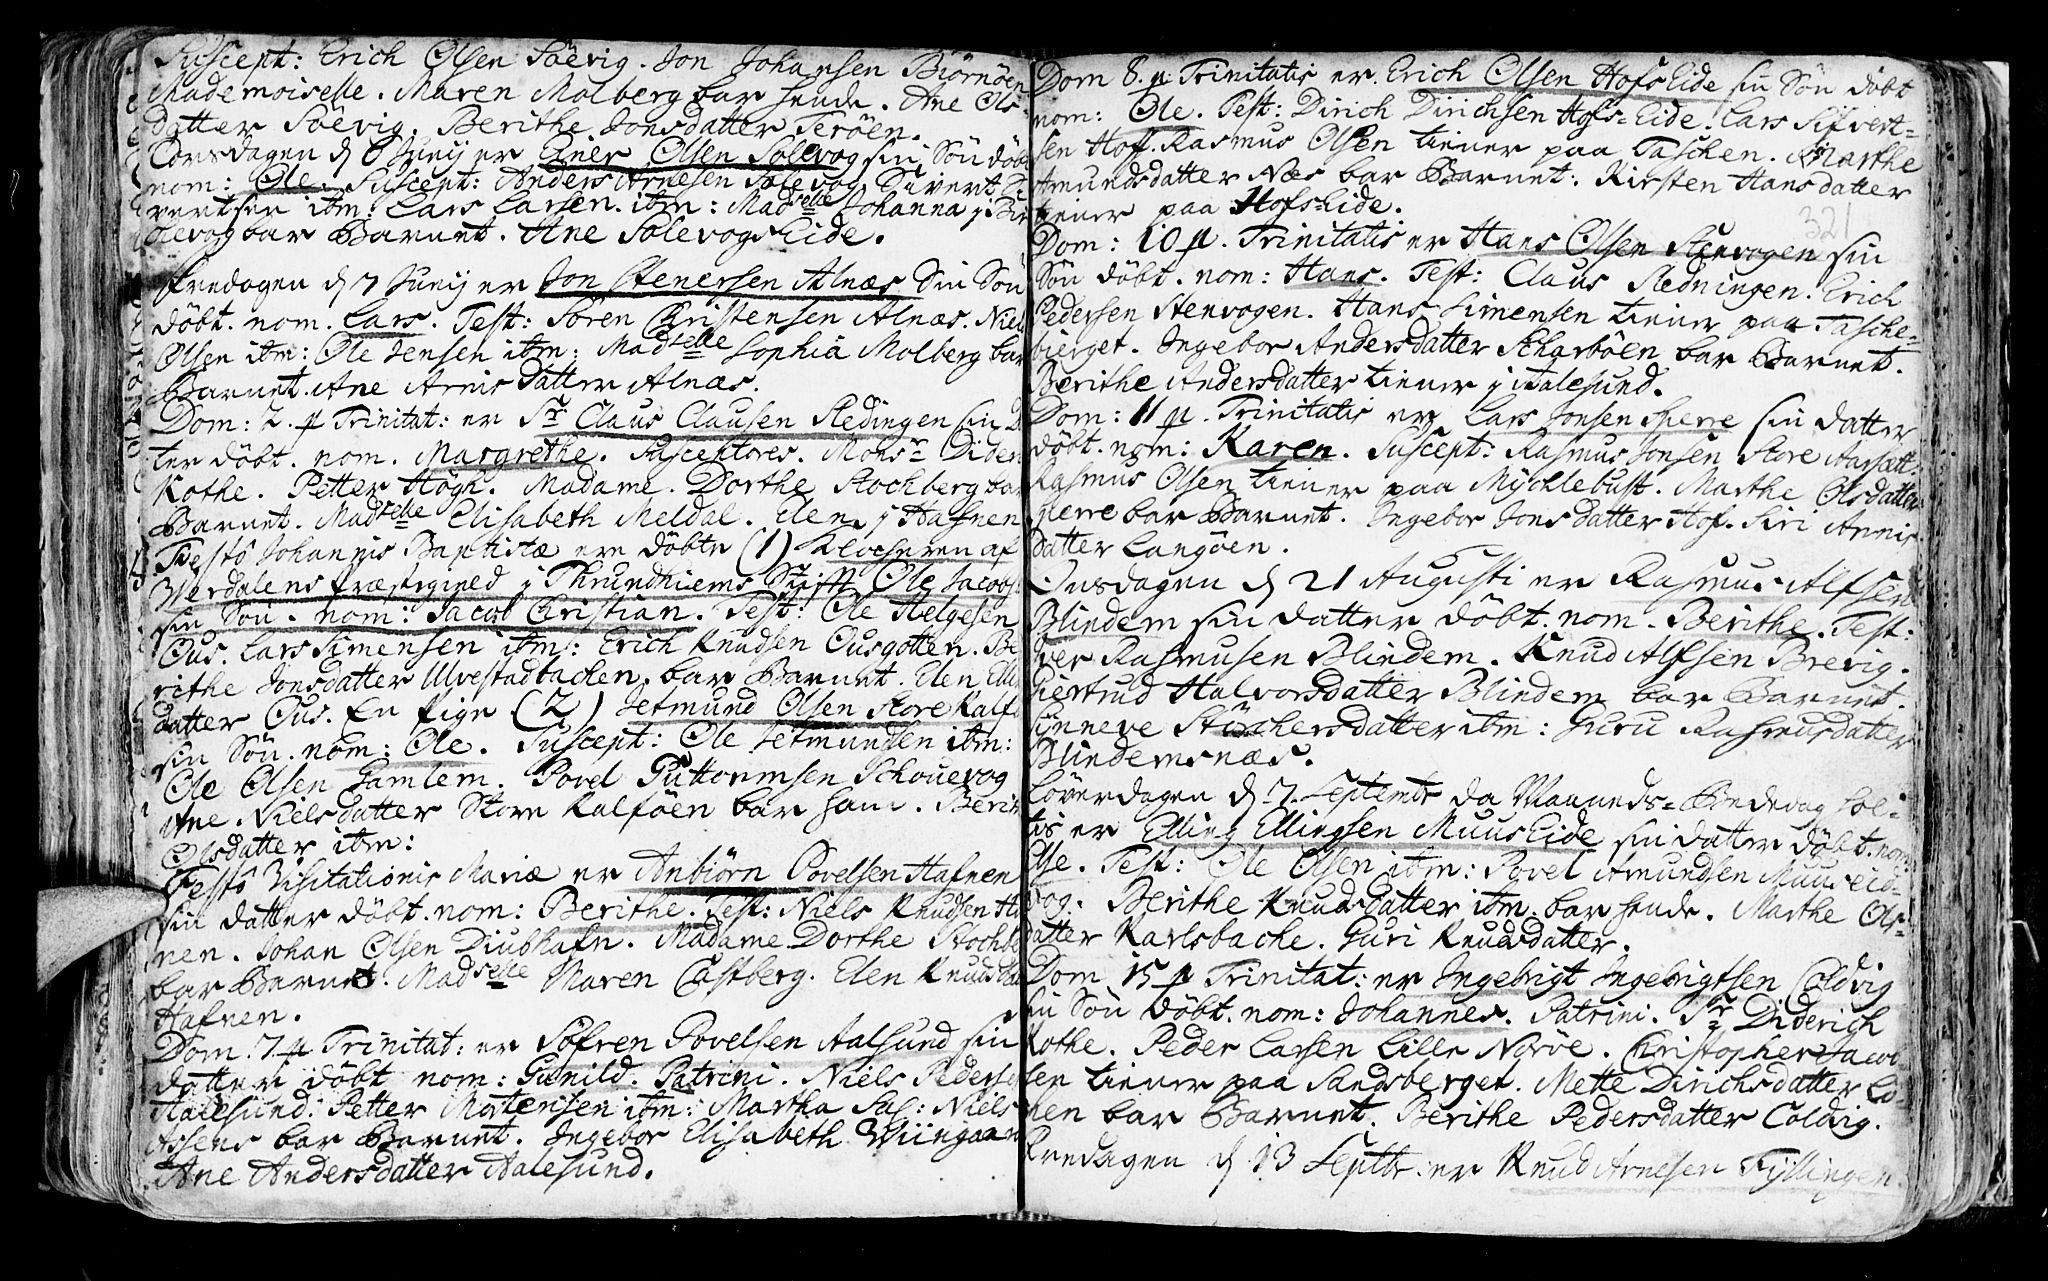 Suscept: Erich Olsen Söevig. Jon Johansen Biörnöen
Mademoiselle. Maren Molberg bar hende. Ane Ols-
datter Söevig. Berithe Jonsdatter Teröen.
Torsdagen d 6 Junij er Einer Olsen Solevog sin Sön döbt
nom: Ole. Suscept: Anders Arnesen Solevog Sivert Si
vertsen ibm: Lars Larsen. ibm: Madselle Johanna
olevog bar Barnet. Ane SolevogsEide.
Fredagen d 7 Junij er Jon Stenersen Alnæs Sin Sön
döbt. nom. Lars. Test: Sören Christensen Alnæs. Niels
Olsen ibm: Ole Jensen ibm: Madselle Sophia Molberg bar
Barnet. Ane Arnisdatter Alnæs.
Dom: 2. p Trinitat: er Sr Claus Clausen Sledingen sin D
ter döbt. nom. Margrethe. Susceptores. Monsr Dider
Kothe. Petter Högh. Madame. Dorthe Stochberg bar
Barnet. Madselle Elisabeth Meldal. Elen j Hafnen
Festô Johannis Baptistæ ere döbte (1) Klocheren af
Werdalens Præstegield j Thrundhiems Stift Ole Jacobs
sin Sön. nom: Jacob Christian. Test: Ole Helgesen
Ous. Lars Simensen ibm: Erich Knudsen Ousgotten. Be
rithe Jonsdatter Ulvestadbachen. bar Barnet. Elen
datter Ous. En Pige (2) Jetmund Olsen Store Kalf
sin Sön. nom: Ole. Suscept: Ole Jetmundsen ibm:
Ole Olsen Gamlem. Povel Guttormsen Schouevog
Ane. Nielsdatter Store Kalföen bar ham. Berit
Olsdatter ibm:
Festô Visitationis Mariæ er Anbiörn Povelsen Hafnen
sin datter döbt. nom: Berithe. Test: Niels Knudsen Ha
nen. Johan Olsen Diubhafn. Madame Dorthe Stochbe
bar Barnet. Madselle Maren Castberg. Elen Knudsdat
Hafnen.
Dom. 7 p Trinitat: er Söfren Povelsen Aalsund sin
datter döbt nom: Gunild. Patrini. Niels Pederse
Aalesund. Petter Mortensen ibm: Martha Sal: Niels
Assens bar Barnet. Ingebor Elisabeth Wiingaar
Ane Andersdatter Aalesund.
Dom 8. p. Trinitatis er. Erich Olsen HofsEide sin Sön döbt
nom: Ole. Test: Dirich Dirichsen Hofs=Eide. Lars Sifvert-
sen Hof. Rasmus Olsen tiener paa Taschen. Marthe
Amundsdatter Næs bar Barnet. Kirsten Hansdatter
tiener paa HofsEide.
321
Dom: 10 p. Trinitatis er Hans Olsen Stenvogen sin
Sön döbt. nom: Hans. Test: Claus Sledningen. Erich
Pedersen Stenvogen. Hans Simensen tiener paa Tasche-
bierget. Ingebor Andersdatter Scharböen bar Barnet.
Berithe Andersdatter tiener j Aalesund.
Dom: 11 p. Trinitatis er Lars Jonsen Sperre sin datter
döbt. nom: Karen. Suscept: Rasmus Jonsen Store Aarsætt.
Rasmus Olsen tiener paa Mychlebust. Marthe Olsdatter
Sperre bar Barnet. Ingebor Jonsdatter Hof. Siri Arnis-
datter Langöen.
Onsdagen d 21 Augusti er Rasmus Alfsen
Blindem sin datter döbt. nom. Berithe. Test:
Iver Rasmusen Blindem. Knud Alfsen Brevig.
Giertrud Halvorsdatter Blindem bar Barnet.
Sünneve datter ibm: Guru Rasmusdatter
Blindemsnæs.
Löverdagen d. 7. Septembr da Maaneds=Böndedag hol-
tis er Elling Ellingsen MuusEide sin datter döbt. nom:
Else. Test: Ole Olsen ibm: Povel Amundsen Muuseid-
vog. Berithe Knudsdatter ibm. bar hende. Marthe Ols-
datter Karlsbache. Guri Knudsdatter.
Dom 15 p Trinitat: er Ingebrigt Ingebrigtsen Coldvig
sin Sön döbt. nom: Johannes. Patrini. Sr Diderich
Kothe. Peder Larsen Lille Noröe. Christopher Jacob
sen tiener paa Sandsberget. Mette Dirichsdatter Lo-
nen bar Barnet. Berithe Pedersdatter Coldvig.
Fredagen d 13 Septbr. er Knud Arnesen Fyllingen.